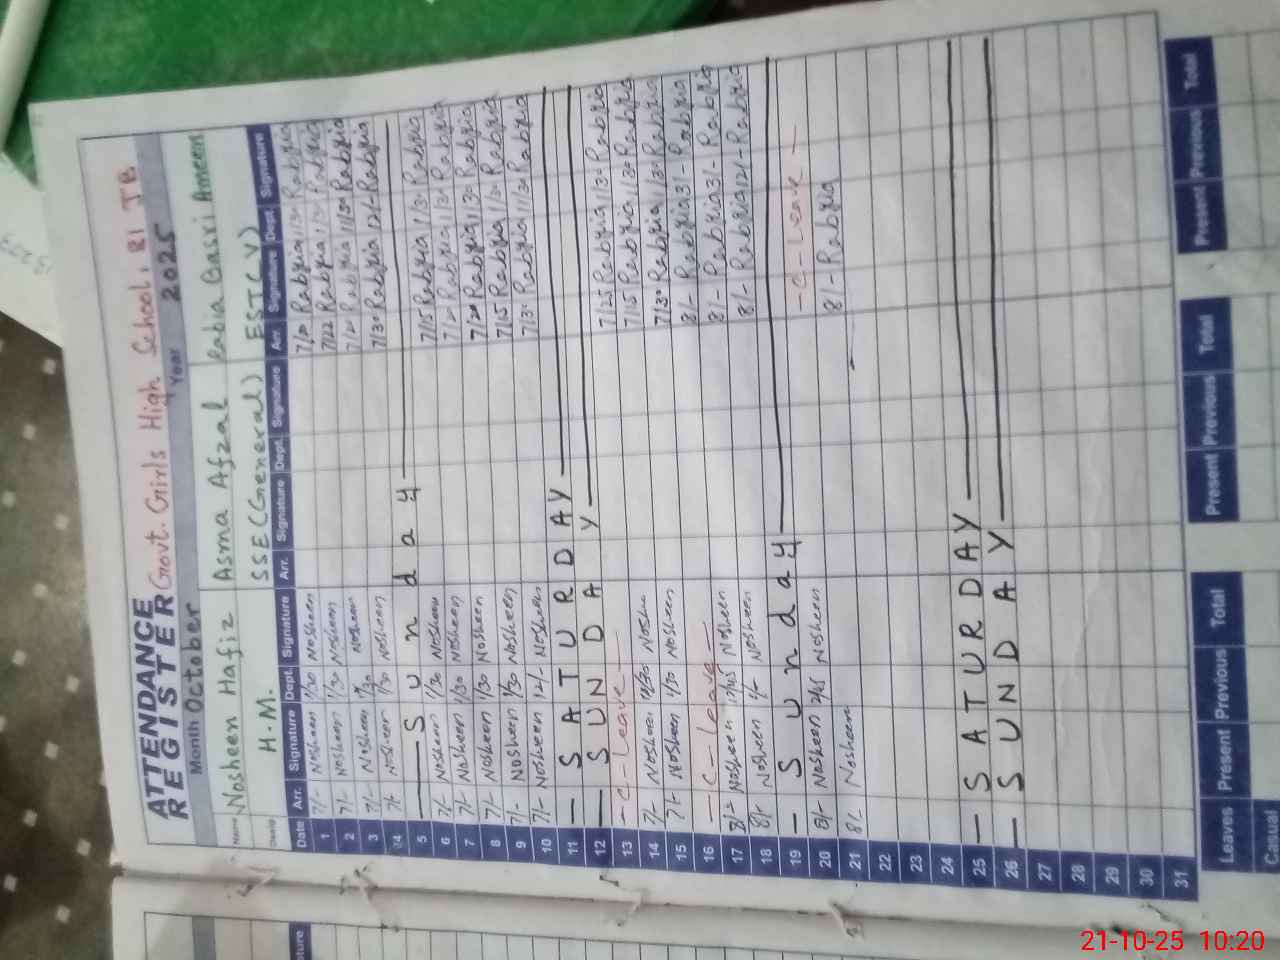 ATTENDANCE
REGISTER Govt. Girls High School, 81 JB
Month October Year 2025
Name Nosheen Hafiz Asma Afzal Rabia Basri Ameen
H.M. SSE(General) EST(CV)
Date Arr. Signature Dept. Signature Arr. Signature Dept. Signature Arr. Signature Dept. Signature
1 7/- Nosheen 1/30 Nosheen Rabxia 1/30 Rabxia
2 7/- Nosheen 1/30 Nosheen 7/22 Rabxia 1/30 Rabxia
3 7/- Nosheen Nosheen Rabxia 1/30 Rabxia
4 7/- Nosheen 1/30 Nosheen 7/30 Rabxia 12/- Rabxia
5 Sunday
6 7/- Nosheen 1/30 Nosheen 7/15 Rabxia 1/30 Rabxia
7 7/- Nosheen 1/30 Nosheen Rabxia 1/30 Rabxia
8 7/- Nosheen 1/30 Nosheen 7/20 Rabxia 1/30 Rabxia
9 7/- Nosheen 1/30 Nosheen 7/15 Rabxia 1/30 Rabxia
10 7/- Nosheen 12/- Nosheen 7/30 Rabxia 11/30 Rabxia
11 — SATURDAY —
12 — SUNDAY —
13 — C-Leave — 7/25 Rabxia 1/30 Rabxia
14 7/- Nosheen Noshee 7/15 Rabxia 1/30 Rabxia
15 7/- Nosheen 1/30 Nosheen 7/30 Rabxia 1/30 Rabxia
16 — C-Leave — 8/- Rabxia 3/- Rabxia
17 8/- Nosheen Nosheen 8/- Rabxia 3/- Rabxia
18 8/- Nosheen Nosheen 8/- Rabxia 12/- Rabxia
19 — Sunday —
20 8/- Nosheen 2/45 Nosheen — C-Leave —
21 8/- Nosheen 8/- Rabxia
22
23
24
25 — SATURDAY —
26 — SUNDAY —
27
28
29
30
31
Leaves Present Previous Total Present Previous Total Present Previous Total
Casual
21-10-25 10:20